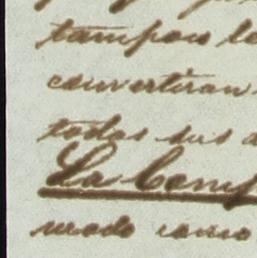 tampoco lo
convertiran
todas sus d
La Comp
modo como